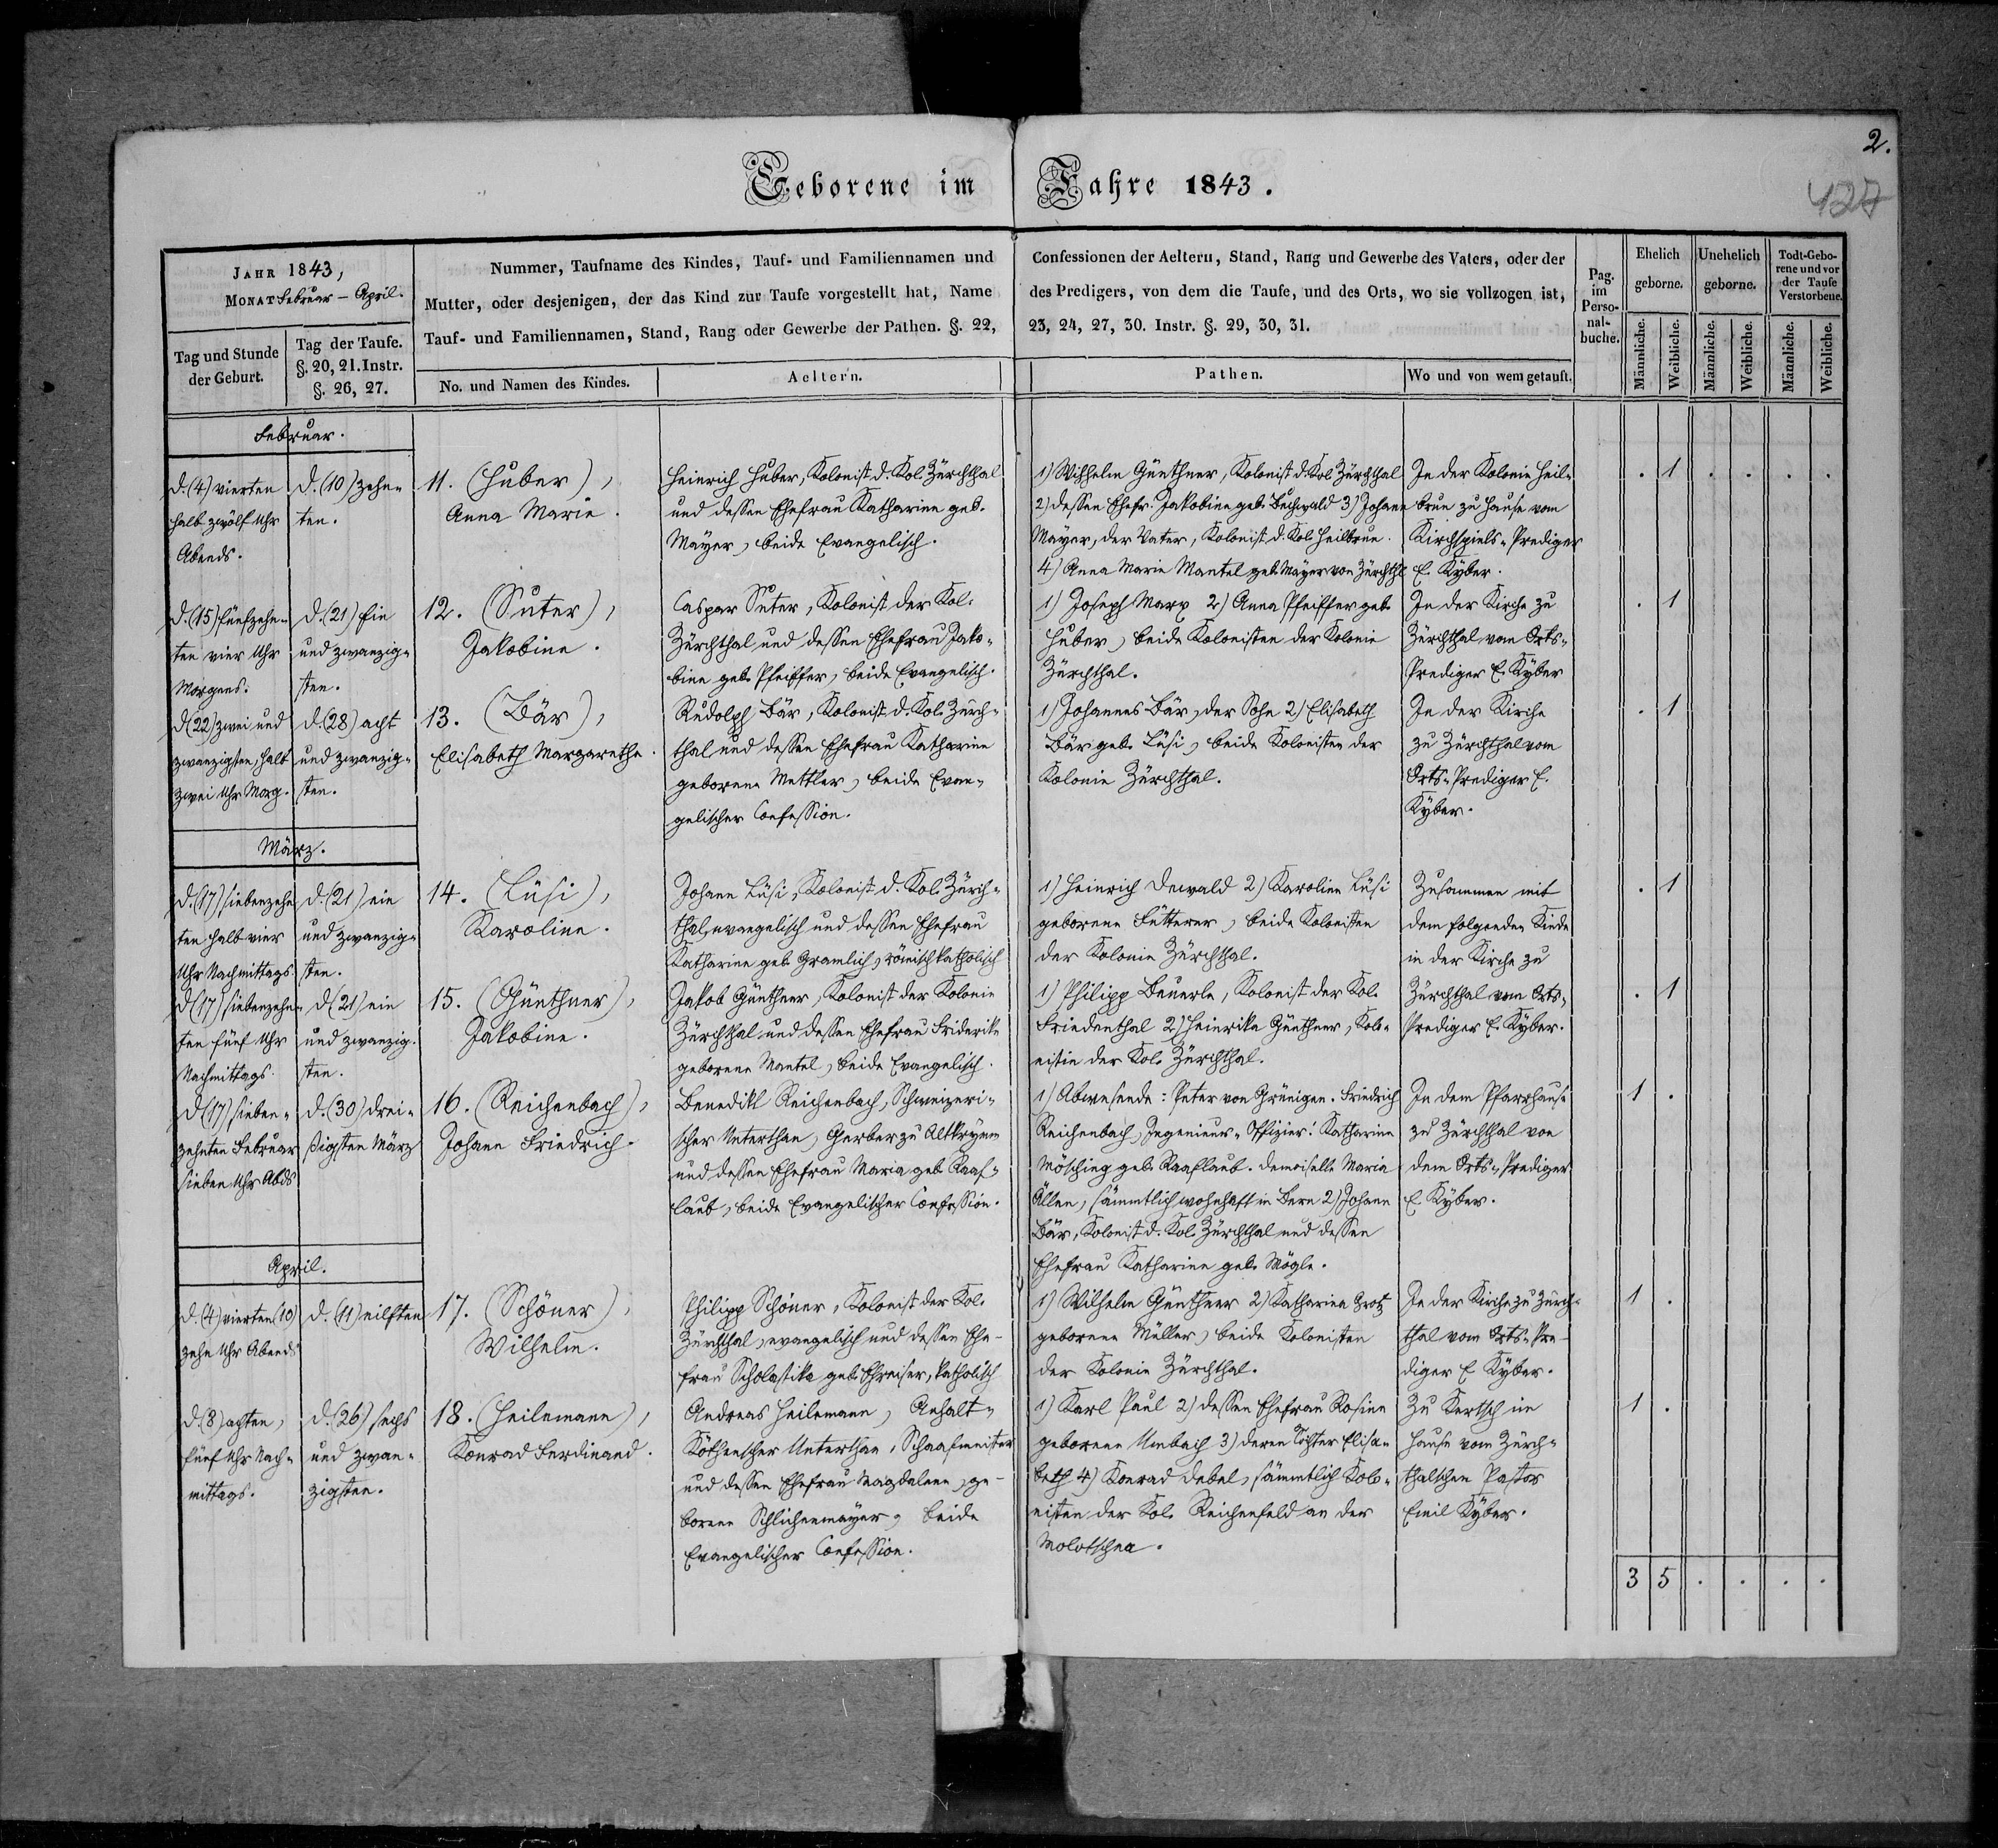 2.
427
Geborene im Jahre 1843.
JAHR 1843,
MONAT Februar – April.
Tag und Stunde
der Geburt.
Tag der Taufe.
§. 20, 21. Instr.
§. 26, 27.
Nummer, Taufname des Kindes, Tauf- und Familiennamen und
Mutter, oder desjenigen, der das Kind zur Taufe vorgestellt hat, Name
Tauf- und Familiennamen, Stand, Rang oder Gewerbe der Pathen. §. 22,
No. und Namen des Kindes.
Aeltern.
Confessionen der Aeltern, Stand, Rang und Gewerbe des Vaters, oder der
des Predigers, von dem die Taufe, und des Orts, wo sie vollzogen ist,
23, 24, 27, 30. Instr. §. 29, 30, 31.
Pathen.
Wo und von wem getauft.
Pag.
im
Perso-
nal-
buche.
Ehelich
geborne.
Unehelich
geborne.
Todt-Gebo-
rene und vor
der Taufe
Verstorbene.
Männliche.
Weibliche.
Männliche.
Weibliche.
Männliche.
Weibliche.
Februar.
d. (4) vierten
halb zwölf Uhr
Abends.
d. (10) zehn-
ten.
11. (Huber),
Anna Marie.
Heinrich Huber, Kolonist d. Kol. Zürchthal
und dessen Ehefrau Katharina geb.
Mayer, beide Evangelisch.
1) Wilhelm Günthner, Kolonist d. Kol. Zürchthal
2) dessen Ehefr. Jakobine geb. Buchwald 3) Johann
Mayer, der Vater, Kolonist d. Kol. Heilbrun.
4) Anna Marie Mantel geb. Mayer von Zürchthl
In der Kolonie Heil-
brun zu Hause vom
Kirchspiels-Prediger
E. Kyber.
. 1 . . . .
d. (15) fünfzehn-
ten vier Uhr
Morgens.
d. (21) Ein
und zwanzig-
sten.
12. (Suter),
Jakobine.
Caspar Suter, Kolonist der Kol.
Zürchthal und dessen Ehefrau Jako-
bine geb. Pfeiffer, beide Evangelisch.
1) Joseph Marx 2) Anna Pfeiffer geb.
Huber, beide Kolonisten der Kolonie
Zürchthal.
In der Kirche zu
Zürchthal vom Orts-
Prediger E. Kyber
. 1
d (22) zwei und
zwanzigsten, halb
zwei Uhr Morg.
d. (28) acht
und zwanzig-
sten.
13. (Bär),
Elisabeth Margarethe.
Rudolph Bär, Kolonist d. Kol. Zürch-
thal und dessen Ehefrau Katharina
geborene Mettler, beide Evan-
gelischer Confession.
1) Johannes Bär, der Sohn 2) Elisabeth
Bär geb. Lüsi, beide Kolonisten der
Kolonie Zürchthal.
In der Kirche
zu Zürchthal vom
Orts-Prediger E.
Kyber.
. 1
März.
d. (17) siebenzehn
ten halb vier
Uhr Nachmittags
d. (21) ein
und zwanzig-
sten.
14. (Lüsi),
Karoline.
Johann Lüsi, Kolonist d. Kol. Zürch-
thal, evangelisch und dessen Ehefrau
Katharina geb. Gramlich, römisch katholisch
1) Heinrich Dewald 2) Karoline Lüsi
geborene Fütterer, beide Kolonisten
der Kolonie Zürchthal.
Zusammen mit
dem folgenden Kinde
in der Kirche zu
. 1
d (17) siebenzehn-
ten fünf Uhr
Nachmittags.
d (21) ein
und zwanzig-
sten.
15. (Günthner),
Jakobine.
Jakob Günthner, Kolonist der Kolonie
Zürchthal und dessen Ehefrau Friderike
geborene Mantel, beide Evangelisch.
1) Philipp Beuerle, Kolonist der Kol.
Friedenthal 2) Heinrika Günthner, Kolo-
nistin der Kol. Zürchthal.
Zürchthal vom Orts-
Prediger E. Kyber.
. 1
d (17) sieben-
zehnten Februar
sieben Uhr Abds
d. (30) drei-
ßigsten März
16. (Reichenbach),
Johann Friedrich.
Benedikt Reichenbach, Schweizeri-
scher Unterthan, Gerber zu Altkrymm
und dessen Ehefrau Maria geb. Raaf-
laub, beide Evangelischer Confession.
1) Abwesende: Peter von Grünigen. Friedrich
Reichenbach, Ingenieur-Offizier. Katharina
Mösching geb. Raaflaub. Demoiselle Maria
Allen, sämmtlich wohnhaft in Bern 2) Johann
Bär, Kolonist d. Kol. Zürchthal und dessen
Ehefrau Katharina geb. Mögle.
In dem Pfarrhause
zu Zürchthal von
dem Orts-Prediger
E. Kyber.
1 .
April.
d. (4) vierten (10)
zehn Uhr Abends
d. (11) eilften
17. (Schöner),
Wilhelm.
Philipp Schöner, Kolonist der Kol.
Zürchthal, evangelisch und dessen Ehe-
frau Scholastika geb. Schreiser, katholisch
1) Wilhelm Günthner 2) Katharina Grotz
geborene Müller, beide Kolonisten
der Kolonie Zürchthal.
In der Kirche zu Zürch-
thal vom Orts-Pre-
diger E Kyber.
1 .
d. (8) achten,
fünf Uhr Nach-
mittags.
d. (26) sechs
und zwan-
zigsten.
18. (Heilemann),
Konrad Ferdinand.
Andreas Heilemann, Anhalt-
Köthenscher Unterthan, Schaafmeister
und dessen Ehefrau Magdalena, ge-
borene Schlichenmayer, beide
Evangelischer Confession.
1) Karl Paul 2) dessen Ehefrau Rosina
geborene Umbach 3) deren Tochter Elisa-
beth 4) Konrad Debel, sämmtlich Kolo-
nisten der Kol. Reichenfeld an der
Molotschna.
Zu Kertsch im
Hause vom Zürch-
thalschen Pastor
Emil Kyber.
1 .
3 5 . . . .